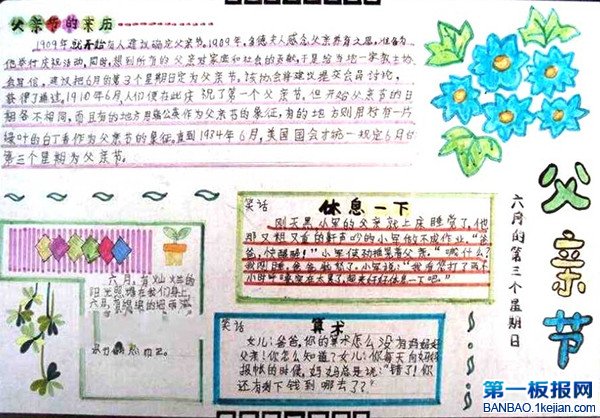 父亲节的来历
1909年就开始有人建议确定父亲节。1909年,多德夫人感念父亲养育之恩,准备为
他举行庆祝活动,同时,想到所有的父亲对家庭和社会的贡献,于是给当地一家教士协
会写信,建议把6月的第3个星期日定为父亲节。该协会将建议提交会员讨论,
获得了通过。1910年6月,人们便在此庆祝了第一个父亲节。但开始父亲节的日
期各不相同,而且有的地方用蒲公英作为父亲节的象征,有的地方则用衬有一片
绿叶的白丁香作为父亲节的象征。直到1934年6月,美国国会才统一规定6月的
第三个星期为父亲节。
父亲节
六月的第三个星期日
笑话
休息一下
刚天黑小军的父亲就上床睡觉了,他
那又粗又重的鼾声吵的小军做不成作业。“爸
爸,快醒醒!”小军使劲推
六月,有灿烂的
阳光
笑话
算术
女儿:爸爸,你的算术怎么没有妈妈好
父亲:你怎么知道?女儿:你每天向妈妈
报帐的时候,妈妈总是说:“错了!你
还有剩下钱到哪去了?”
第一板报网
BANBAO.1kejian.com